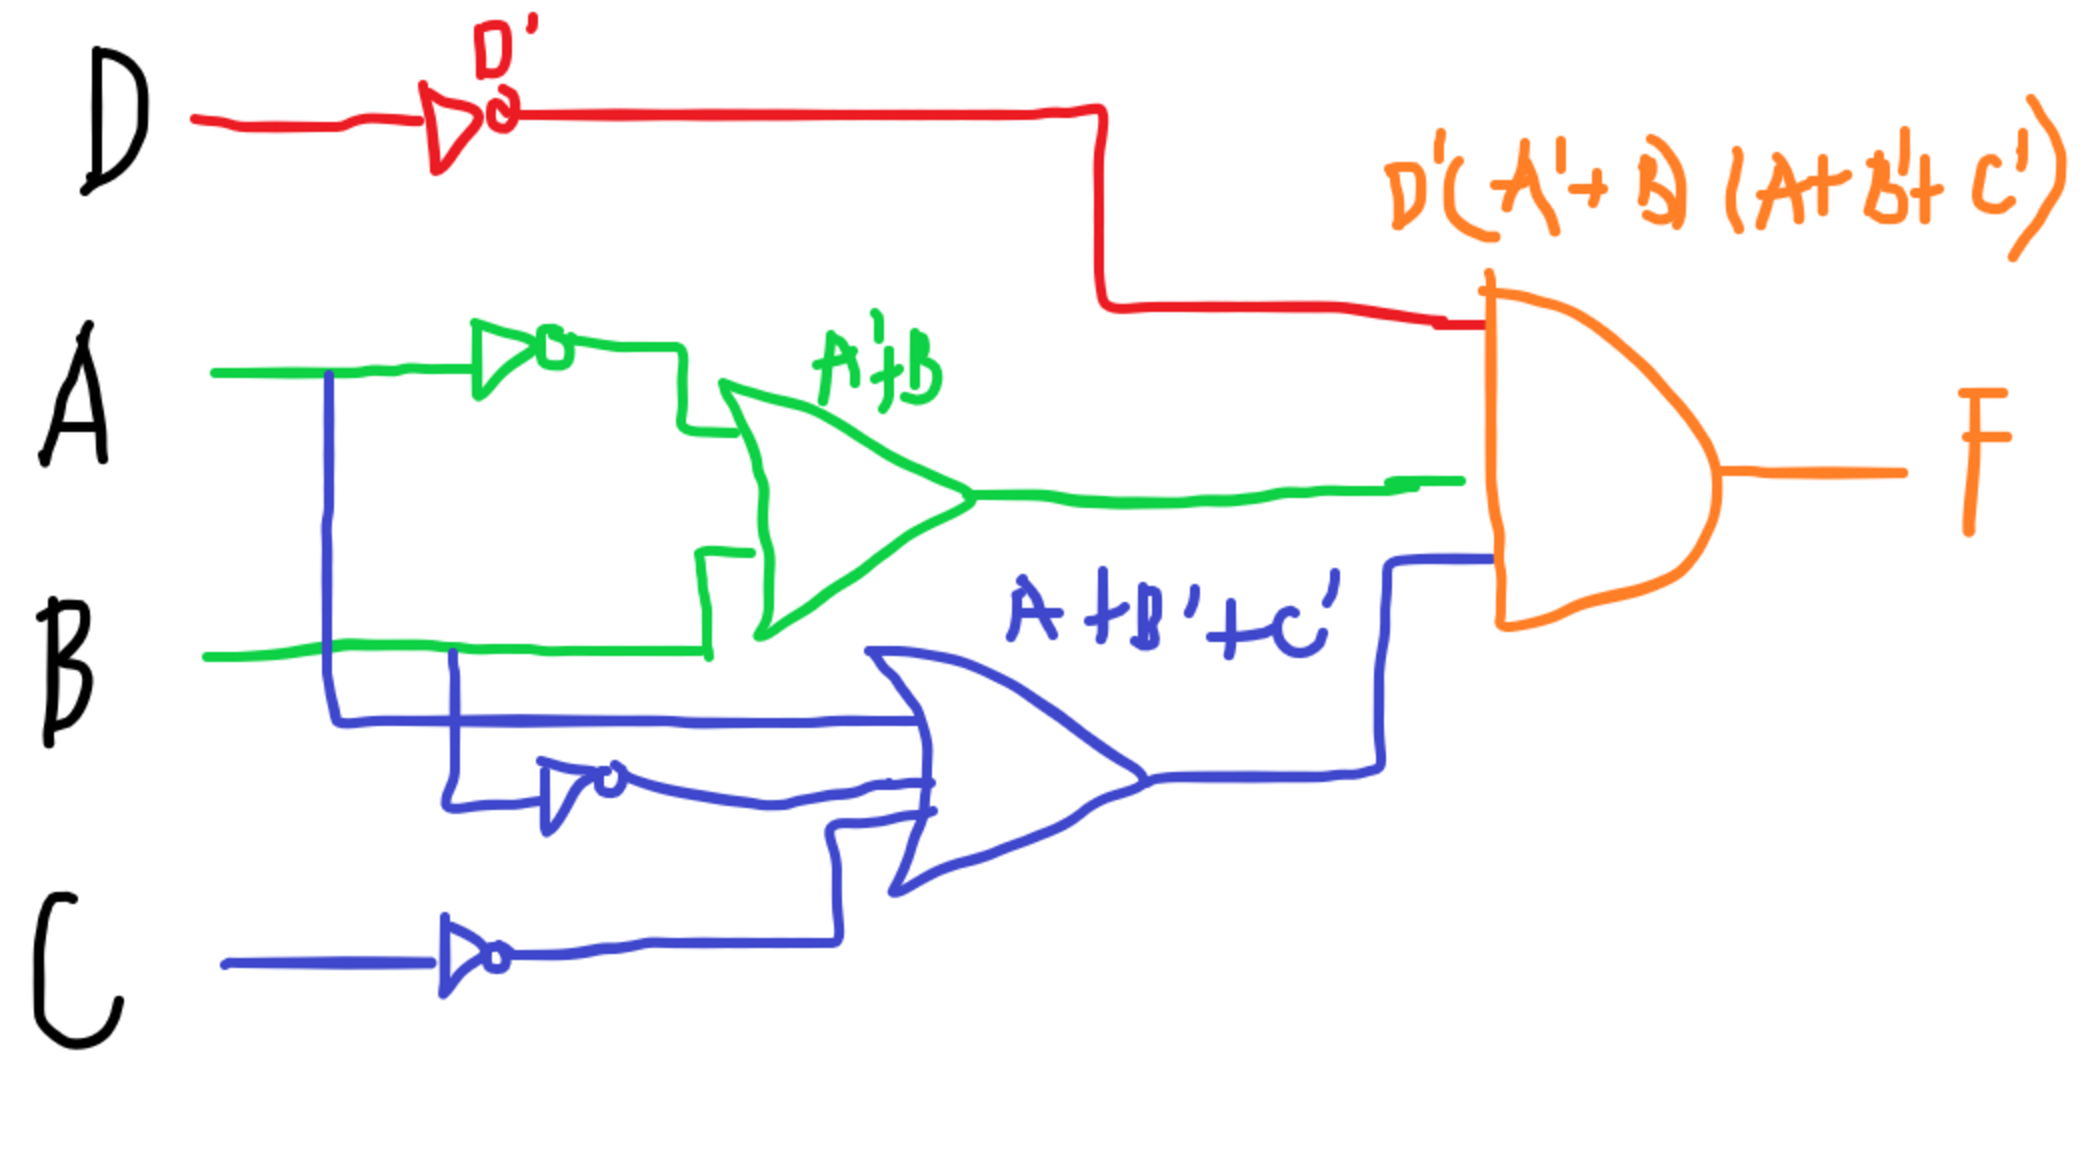 D'
D
D'(A'+B)(A+B'+C')
A
A'+B
F
A+B'+C'
B
C